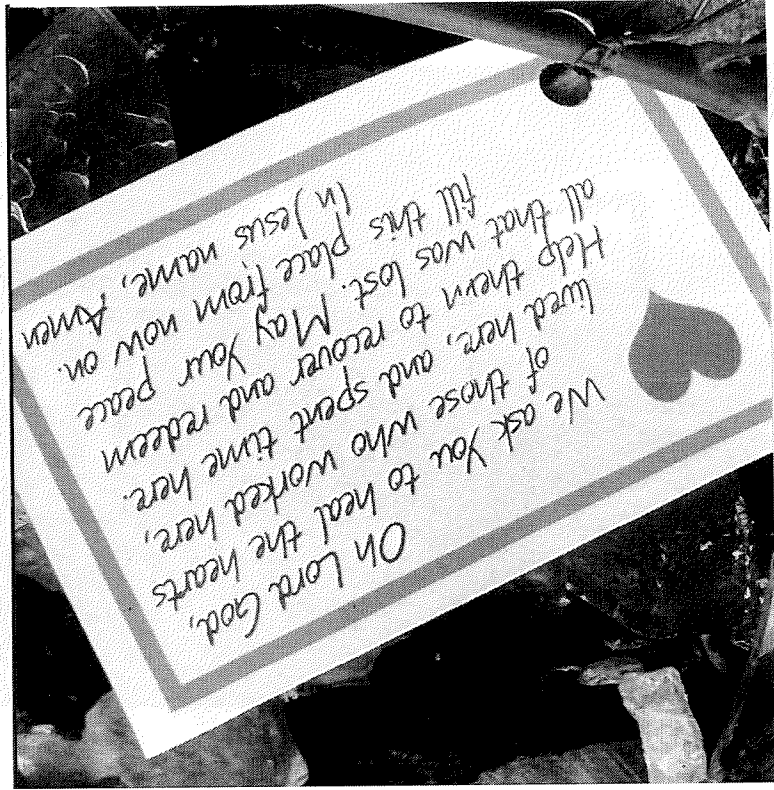 Oh Lord God,
We ask You to heal the hearts
of those who worked here,
lived here, and spent time here.
Help them to recover and redeem
all that was lost. May Your peace
fill this place from now on.
In Jesus name, Amen